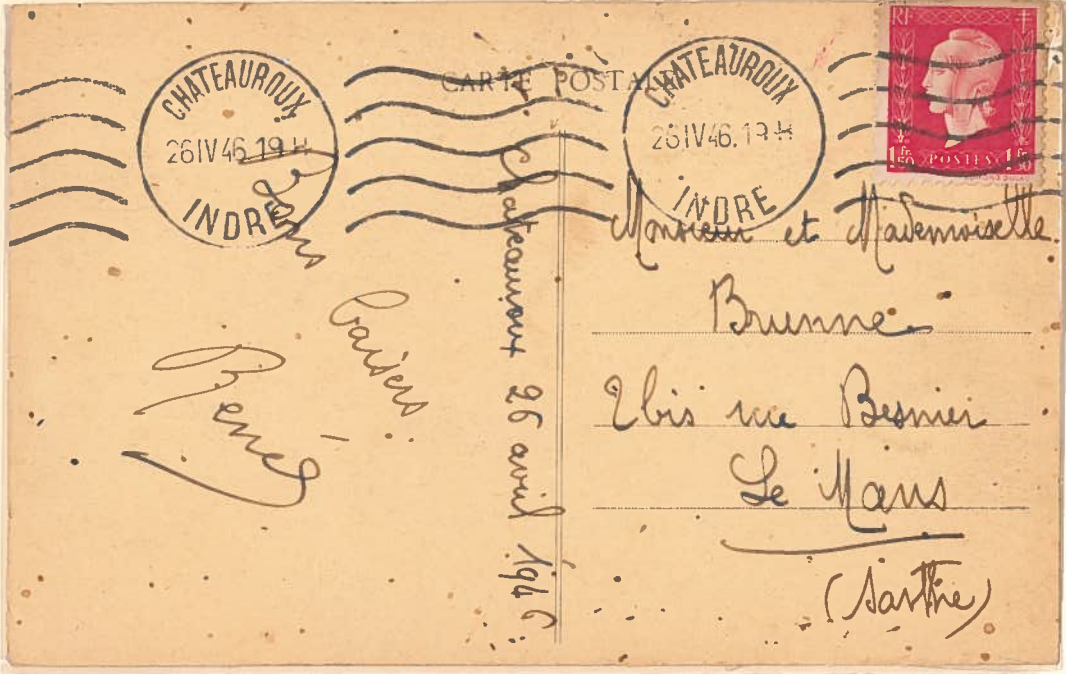 CARTE POSTALE
CHATEAUROUX
26 IV 46. 19 H
INDRE
CHATEAUROUX
26 IV 46. 19 H
INDRE
RF
1 fr. 50 POSTES 1 fr. 50
Bons
baisers.
René
Chateauroux 26 avril 1946.
Monsieur et Mademoiselle
Brunne
2 bis rue Besnier
Le Mans
(Sarthe)